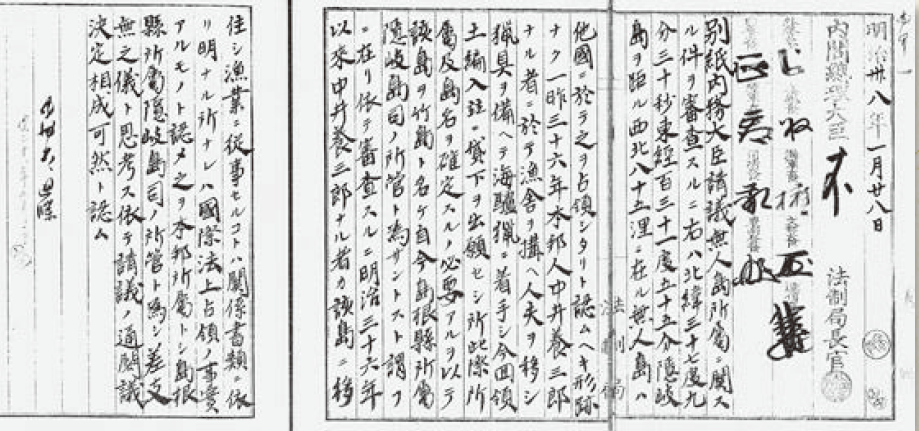 明治卅八年一月廿八日
内閣總理大臣
法制局長官
別紙内務大臣請議無人島所屬ニ関ス
ル件ヲ審査スルニ右ハ北緯三十七度九
分三十秒東経百三十一度五十五分隠岐
島ヲ距ル西北八十五浬ニ在ル無人島ハ
他國ニ於テ之ヲ占領シタリト認ムヘキ形跡
ナク一昨三十六年本邦人中井養三郎
ナル者ニ於テ漁舎ヲ構ヘ人夫ヲ移シ
猟具ヲ備ヘテ海驢猟ニ着手シ今回領
土編入並ニ貸下ヲ出願セシ所此際所
屬及島名ヲ確定スルノ必要アルヲ以テ
該島ヲ竹島ト名ケ自今島根縣所屬
隠岐島司ノ所管ト為サントスト謂フ
ニ在リ依テ審査スルニ明治三十六年
以来中井養三郎ナル者カ該島ニ移
住シ漁業ニ従事セルコトハ関係書類ニ依
リ明ナル所ナレハ國際法上占領ノ事實
アルモノト認メ之ヲ本邦所屬トシ島根
縣所屬隠岐島司ノ所管ト為シ差支
無之儀ト思考ス依テ請議ノ通閣議
決定相成可然ト認ム